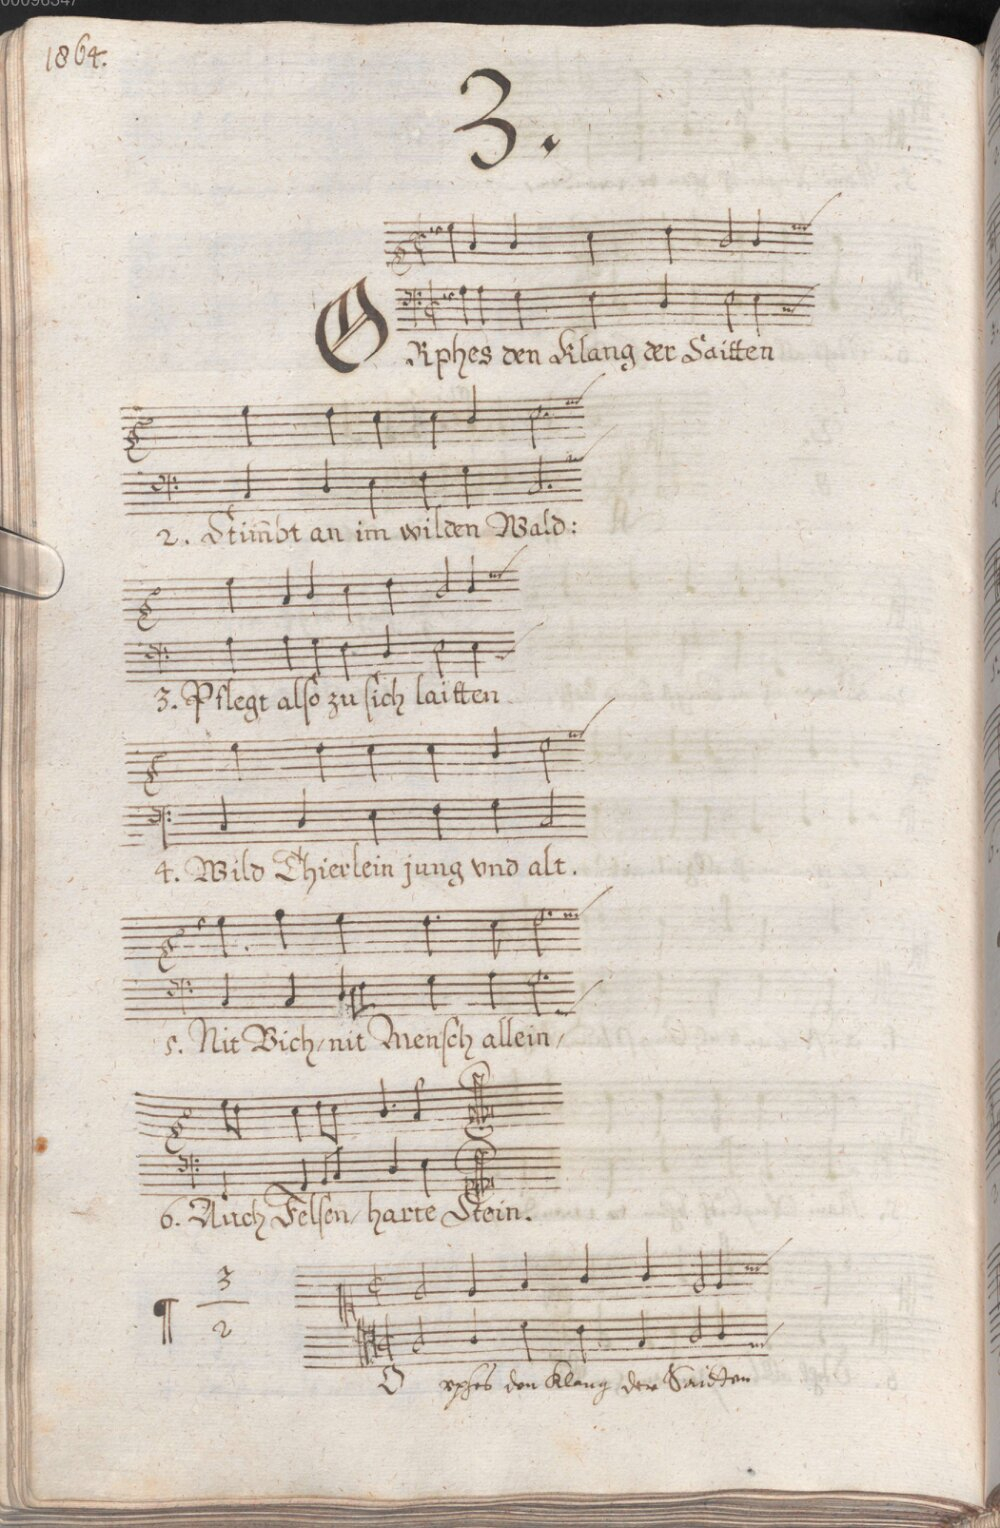 1864.
3.
ORphes den Klang der Saitten
2. Stim̄bt an im wilden Wald:
3. Pflegt also zu sich laitten
4. Wild Thierlein jung vnd alt.
5. Nit Vich, nit Mensch allein,
6. Auch Felsen, harte Stein.
¶ 3
2
Orphes den Klang der Saidten